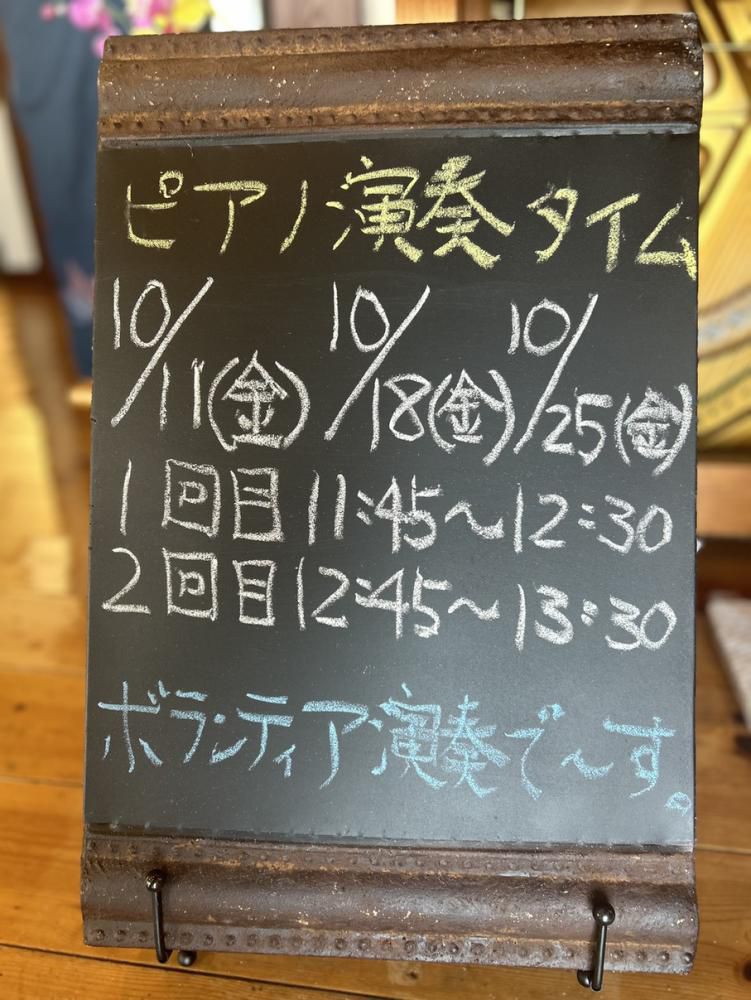 ピアノ演奏タイム
10/11(金) 10/18(金) 10/25(金)
1回目 11:45~12:30
2回目 12:45~13:30
ボランティア演奏で〜す。